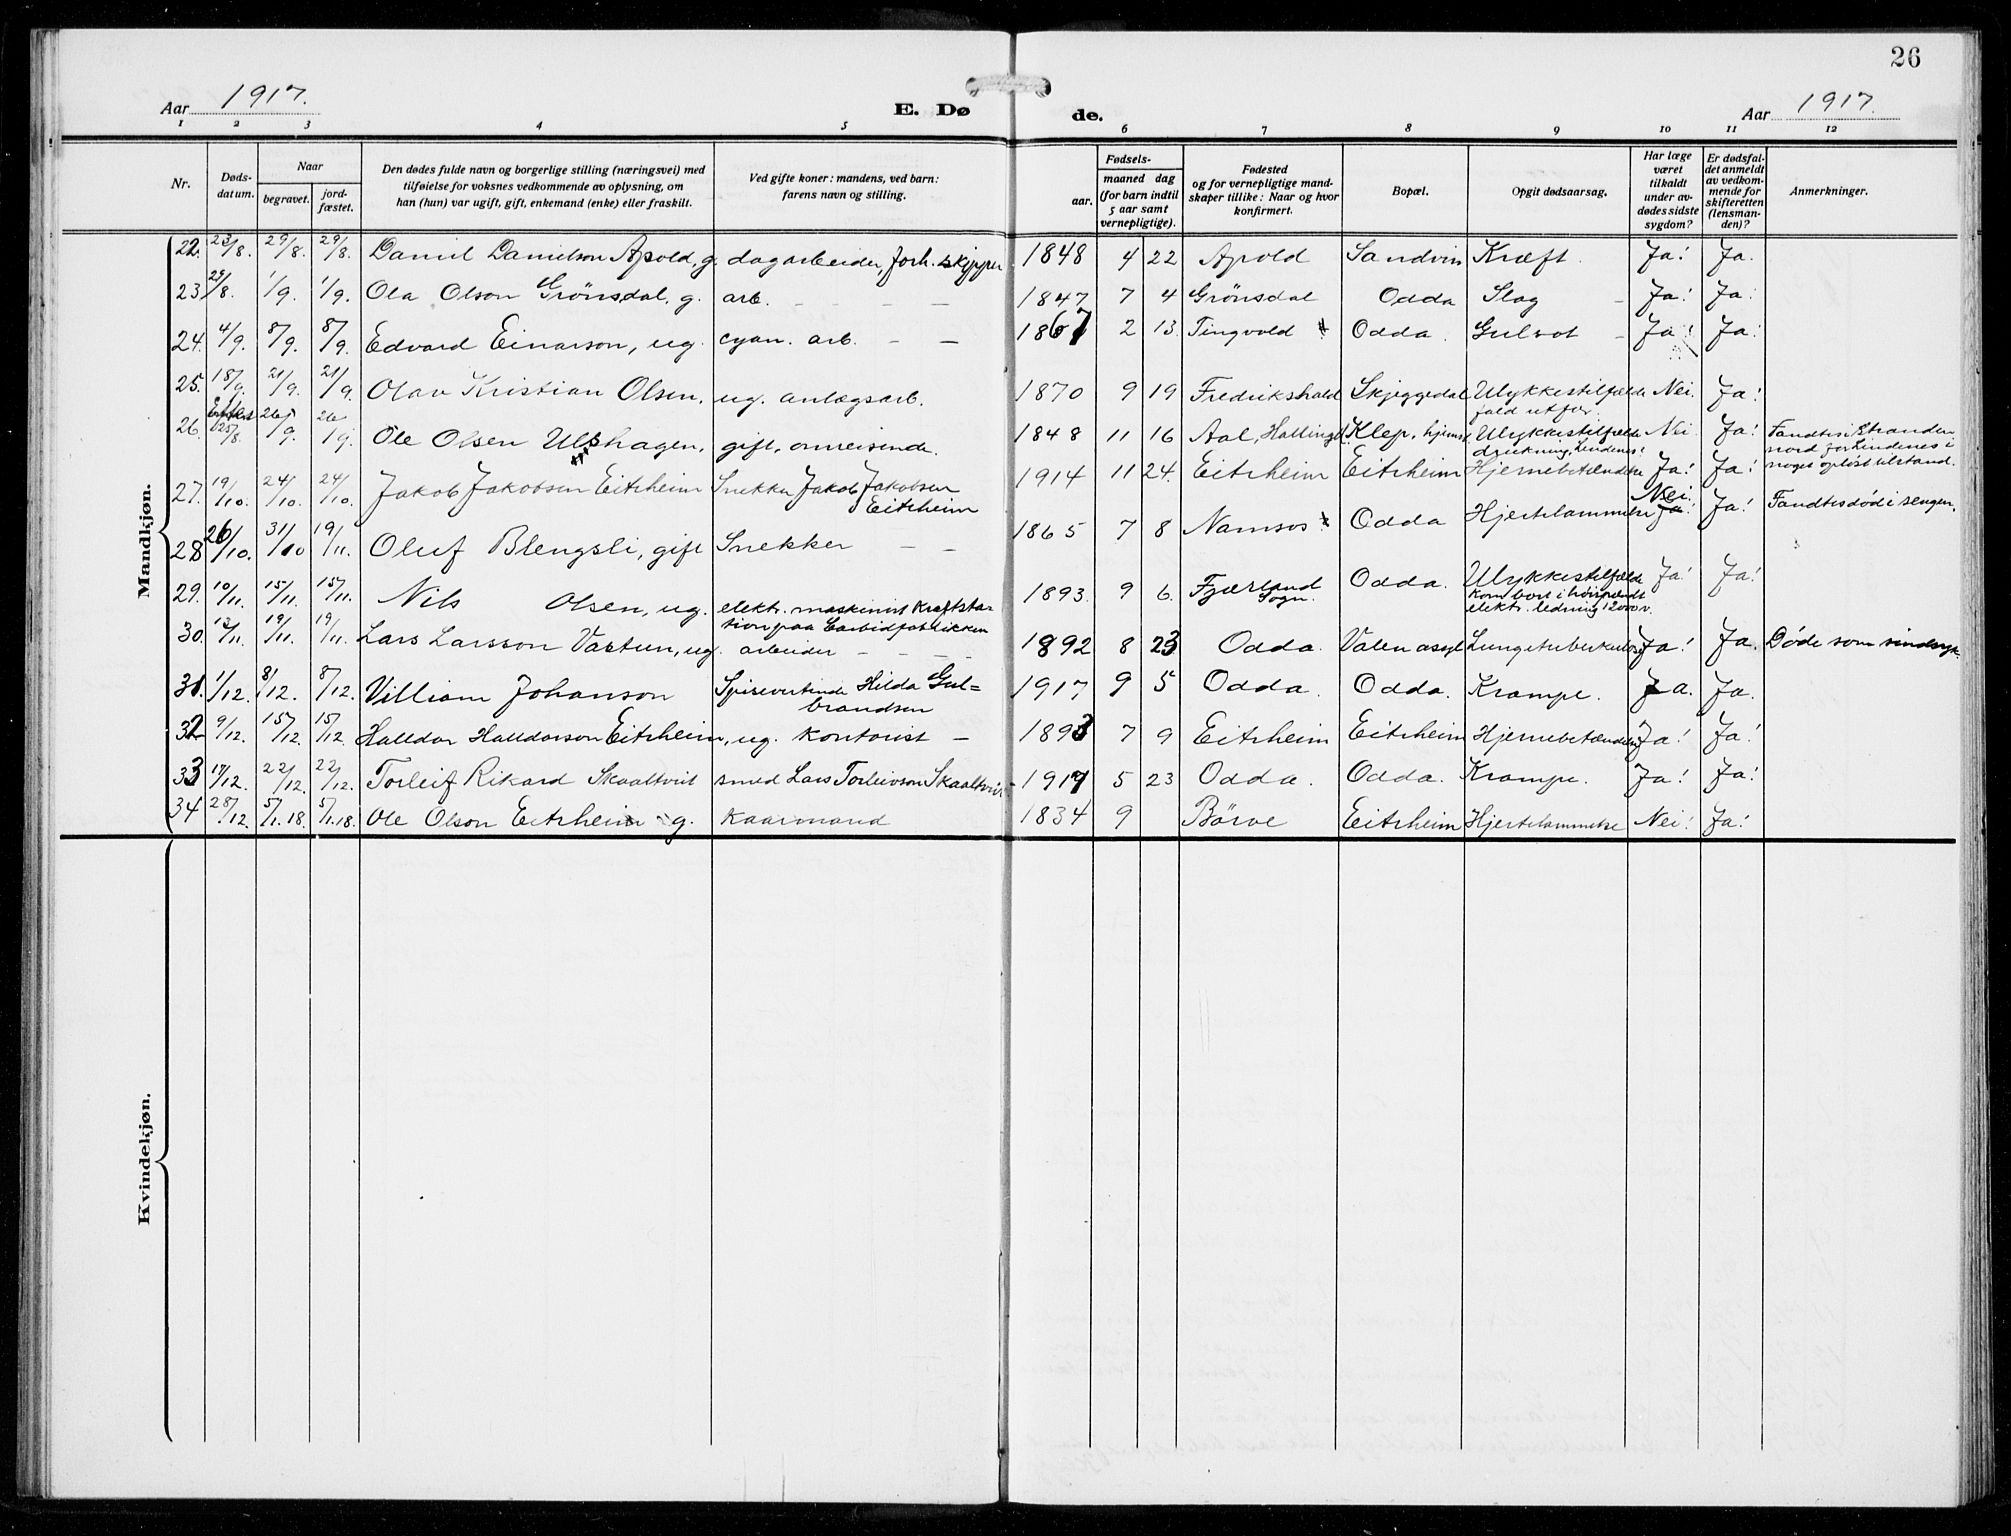 26
Aar 1917.
E. Dø
de.
Aar 1917.
1 2 3 4 5 6 7 8 9 10 11 12
Nr. | Døds-datum. | Naar begravet. | jord-fæstet. | Den dødes fulde navn og borgerlige stilling (næringsvei) med tilføielse for voksnes vedkommende av oplysning, om han (hun) var ugift, gift, enkemand (enke) eller fraskilt. | Ved gifte koner: mandens, ved barn: farens navn og stilling. | Fødsels- aar. | maaned dag (for barn indtil 5 aar samt vernepligtige). | Fødested og for vernepligtige mand-skaper tillike: Naar og hvor konfirmert. | Bopæl. | Opgit dødsaarsag. | Har læge været tilkaldt under av-dødes sidste sygdom? | Er dødsfal-det anmeldt av vedkom-mende for skifteretten (lensman-den)? | Anmerkninger.
Mandkjøn.
22. 23/8. 29/8. 29/8. Daniel Danielson Apold, g. dagarbeider, forh. skipper 1848 4 22 Apold Sandvin Kræft. Ja! Ja.
23 29/8. 1/9. 1/9. Ola Olson Grönsdal, g. arb. — — — 1847 7 4 Grönsdal Odda Slag — Ja! Ja!
24. 4/9. 8/9. 8/9. Edvard Einarson, ug. cyan. arb. — — 1867 2 13. Tingvold Odda. Gulsot — Ja! Ja!
25. 18/9. 21/9. 21/9. Olav Kristian Olsen, ug. anlægsarb. 1870 9 19 Fredrikshald Skjeggedal Ulykkestilfælde fald utfor. Nei. Ja!
26. 25/8. 26/9. 26/9. Ole Olsen Ulshagen, gift, omreisende. 1848 11 16 Aal, Hallingd. Klep, hjemst. Ulykkestilfælde drukning, Lindenes! Nei Ja! Fandtes i Stranden nord for Lindenes i noget opløst tilstand.
27. 19/10. 24/10. 24/10. Jakob Jakobsen Eitrheim Snekker Jakob Jakobsen Eitrheim 1914 11 24. Eitrheim Eitrheim Hjernebetændelse Ja! Ja!
28 26/10. 31/10 19/11. Oluf Blengsli, gift Snekker — — 1865 7 8 Namsos Odda Hjertelammelse Nei. Ja! Ja! Fandtes död i sengen.
29. 10/11. 15/11. 15/11. Nils Olsen, ug. elektr. maskinist Kraftstation paa Carbidfabrikken 1893. 9 6. Fjærland Sogn. Odda. Ulykkestilfælde kom bort i höispændt elektr. ledning 12000 v. Ja! Ja!
30. 12/11. 19/11. 19/11. Lars Larsson Vastun, ug. arbeider — — — 1892 8 23 Odda. Valen asyl Lungetuberkulose Ja! Ja. Döde som sindssyk.
31. 1/12. 8/12. 8/12. Villiam Johanson Spisevertinde Hilda Gulbrandsen 1917 9 5 Odda. Odda. Krampe. Ja. Ja.
32 9/12. 15/12. 15/12. Halldor Halldorson Eitrheim, ug. kontorist — 1893 7 9 Eitrheim Eitrheim Hjernebetændelse Ja! Ja!
33 17/12. 22/12. 22/12. Torleif Rikard Skaaltvit smed Lars Torleivson Skaaltveit 1917 5 23 Odda. Odda. Krampe. Ja! Ja!
34 28/12. 5/1.18. 5/1.18. Ole Olson Eitrheim g. Kaarmand 1834 9 Börve Eitrheim Hjertelammelse Nei! Ja!
Kvindekjøn.